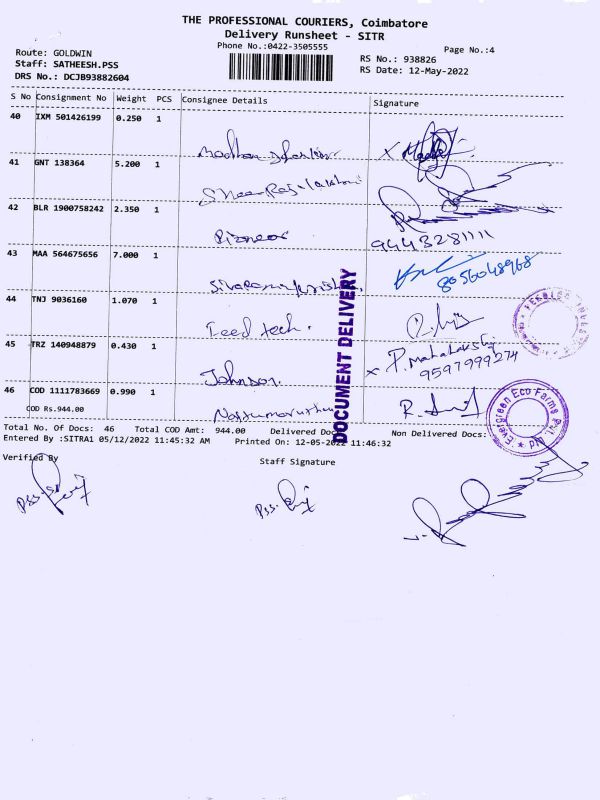 THE PROFESSIONAL COURIERS, Coimbatore
Delivery Runsheet - SITR
Phone No.:0422-3505555
Page No.:4
Route: GOLDWIN
Staff: SATHEESH.PSS
DRS No.: DCJB93882604
RS No.: 938826
RS Date: 12-May-2022
S No Consignment No Weight PCS Consignee Details Signature
40 IXM 501426199 0.250 1
41 GNT 138364 5.200 1
42 BLR 1900758242 2.350 1
Pioneer
9443281111
43 MAA 564675656 7.000 1
8056048968
44 TNJ 9036160 1.070 1
Feed tech.
45 TRZ 140948879 0.430 1
Johnson.
x P. mahalakshmi
9597999274
46 COD 1111783669 0.990 1
COD Rs.944.00
DOCUMENT DELIVERY
Evergreen Eco Farms Pvt.
Total No. Of Docs: 46 Total COD Amt: 944.00 Delivered Docs Non Delivered Docs:
Entered By :SITRA1 05/12/2022 11:45:32 AM Printed On: 12-05-2022 11:46:32
Verified By
Staff Signature